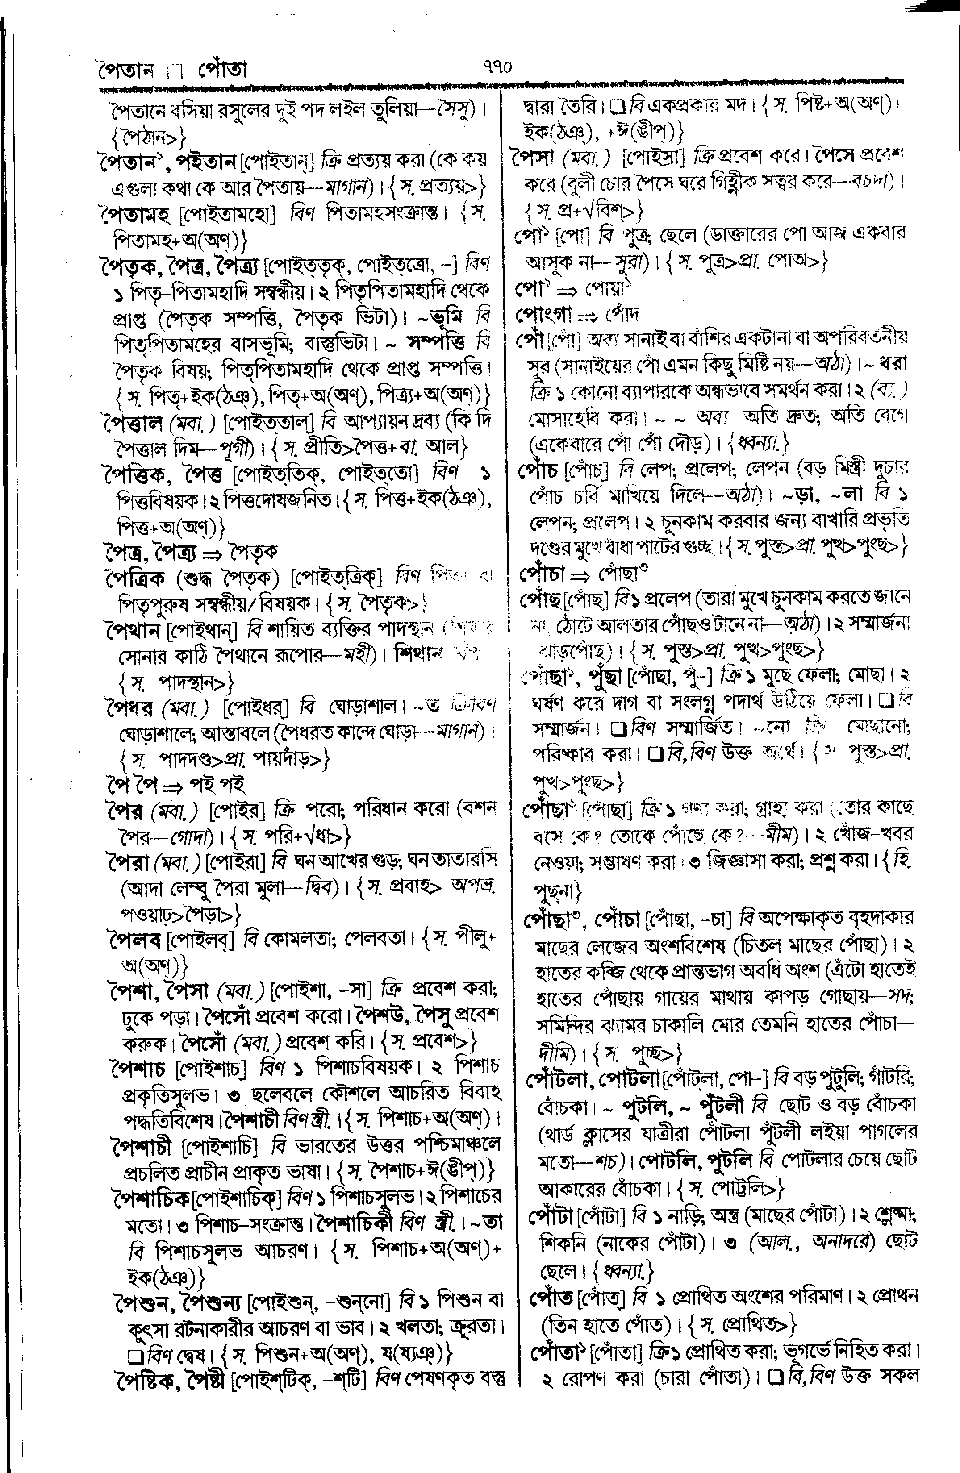 পৈতান পোঁতা
৭৭০
পৈতানে বসিয়া রসুলের দুই পদ লইল তুলিয়া—সৈসু)।
{পৈঠান>}
পৈতান², পইতান [পোইতান্] ক্রি প্রত্যয় করা (কে কয়
এগুলা কথা কে আর পৈতায়—মাগান)। {স. প্রত্যয়>}
পৈতামহ [পোইতামহো] বিণ পিতামহসংক্রান্ত। {স.
পিতামহ+অ(অণ্)}
পৈতৃক, পৈত্র, পৈত্র্য [পোইত্‌তৃক্, পোইত্‌ত্রো, -] বিণ
১ পিতৃ-পিতামহাদি সম্বন্ধীয়। ২ পিতৃপিতামহাদি থেকে
প্রাপ্ত (পৈতৃক সম্পত্তি, পৈতৃক ভিটা)। ~ভূমি বি
পিতৃপিতামহের বাসভূমি; বাস্তুভিটা। ~ সম্পত্তি বি
পৈতৃক বিষয়; পিতৃপিতামহাদি থেকে প্রাপ্ত সম্পত্তি।
{স. পিতৃ+ইক(ঠঞ্), পিতৃ+অ(অণ্), পিত্র্য+অ(অণ্)}
পৈত্তাল (মবা.) [পোইত্‌তাল্] বি আপ্যায়ন দ্রব্য (কি দি
পৈত্তাল দিম—পূগী)। {স. প্রীতি>পৈত্ত+বা. আল}
পৈত্তিক, পৈত্ত [পোইত্‌তিক্, পোইত্‌তো] বিণ ১
পিত্তবিষয়ক। ২ পিত্তদোষজনিত। {স. পিত্ত+ইক(ঠঞ্),
পিত্ত+অ(অণ্)}
পৈত্র, পৈত্র্য ⇒ পৈতৃক
পৈত্রিক (শুদ্ধ পৈতৃক) [পোইত্‌ত্রিক্] বিণ পিতা বা
পিতৃপুরুষ সম্বন্ধীয়/বিষয়ক। {স. পৈতৃক>}
পৈথান [পোইথান্] বি শায়িত ব্যক্তির পাদস্থান
সোনার কাঠি পৈথানে রূপোর—মহী)। শিথান
{স. পাদস্থান>}
পৈধর (মবা.) [পোইধর্] বি ঘোড়াশাল। ~ত ক্রিবিণ
ঘোড়াশালে; আস্তাবলে (পৈধরত কান্দে ঘোড়া—মাগান)।
{স. পাদদণ্ড>প্রা. পায়দাঁড়>}
পৈ পৈ ⇒ পই পই
পৈর (মবা.) [পোইর] ক্রি পরো; পরিধান করো (বশন
পৈর—গোদা)। {স. পরি+√ধা>}
পৈরা (মবা.) [পোইরা] বি ঘন আখের গুড়; ঘন তাতারসি
(আদা লেম্বু পৈরা মুলা—দ্বিব)। {স. প্রবাহ> অপভ্র.
পওয়াঢ>পৈড়া>}
পৈলব [পোইলব্] বি কোমলতা; পেলবতা। {স. পীলু+
অ(অণ্)}
পৈশা, পৈসা (মবা.) [পোইশা, -সা] ক্রি প্রবেশ করা;
ঢুকে পড়া। পৈসোঁ প্রবেশ করো। পৈশউ, পৈসু প্রবেশ
করুক। পৈসোঁ (মবা.) প্রবেশ করি। {স. প্রবেশ>}
পৈশাচ [পোইশাচ্] বিণ ১ পিশাচবিষয়ক। ২ পিশাচ
প্রকৃতিসুলভ। ৩ ছলেবলে কৌশলে আচরিত বিবাহ
পদ্ধতিবিশেষ। পৈশাচী বিণ স্ত্রী.। {স. পিশাচ+অ(অণ্)}
পৈশাচী [পোইশাচি] বি ভারতের উত্তর পশ্চিমাঞ্চলে
প্রচলিত প্রাচীন প্রাকৃত ভাষা। {স. পৈশাচ+ঈ(ঙীপ্)}
পৈশাচিক [পোইশাচিক্] বিণ ১ পিশাচসুলভ। ২ পিশাচের
মতো। ৩ পিশাচ-সংক্রান্ত। পৈশাচিকী বিণ স্ত্রী.। ~তা
বি পিশাচসুলভ আচরণ। {স. পিশাচ+অ(অণ্)+
ইক(ঠঞ্)}
পৈশুন, পৈশুন্য [পোইশুন্, -শুন্‌নো] বি ১ পিশুন বা
কুৎসা রটনাকারীর আচরণ বা ভাব। ২ খলতা; ক্রূরতা।
❏ বিণ দ্বেষ। {স. পিশুন+অ(অণ্), য(ষ্যঞ্)}
পৈষ্টিক, পৈষ্টী [পোইশ্‌টিক্, -শ্‌টি] বিণ পেষণকৃত বস্তু
দ্বারা তৈরি। ❏ বি একপ্রকার মদ। {স. পিষ্ট+অ(অণ্)।
ইক(ঠঞ্), +ঈ(ঙীপ্)}
পৈসা (মবা.) [পোইসা] ক্রি প্রবেশ করে। পৈসে প্রবেশ
করে (বুলী চোর পৈসে ঘরে গিহ্ণীক সত্বর করে—বচদা)।
{স. প্র+√বিশ্>}
পো¹ [পো] বি পুত্র; ছেলে (ডাক্তারের পো আজ একবার
আসুক না—সুরা)। {স. পুত্র>প্রা. পোঅ>}
পো² ⇒ পোয়া¹
পোংগা ⇒ পোঁদ
পোঁ [পোঁ] অব্য সানাই বা বাঁশির একটানা বা অপরিবর্তনীয়
সুর (সানাইয়ের পোঁ এমন কিছু মিষ্টি নয়—অঠা)। ~ ধরা
ক্রি ১ কোনো ব্যাপারকে অন্ধভাবে সমর্থন করা। ২ (ব্য.)
মোসাহেবি করা। ~ ~ অব্য অতি দ্রুত; অতি বেগে
(একেবারে পোঁ পোঁ দৌড়)। {ধ্বন্যা.}
পোঁচ [পোঁচ্] বি লেপ; প্রলেপ; লেপন (বড় মিস্ত্রী দুচার
পোঁচ চর্বি মাখিয়ে দিলে—অঠা)। ~ড়া, ~লা বি ১
লেপন; প্রলেপ। ২ চুনকাম করবার জন্য বাখারি প্রভৃতি
দণ্ডের মুখে বাঁধা পাটের গুচ্ছ। {স. পুস্ত>প্রা. পুত্থ>পুংছ>}
পোঁচা ⇒ পোঁছা³
পোঁছ [পোঁছ্] বি ১ প্রলেপ (তারা মুখে চুনকাম করতে জানে
না, ঠোটে আলতার পোঁছও টানে না—অঠা)। ২ সম্মার্জনা
(ঝাড়পোঁছ)। {স. পুস্ত>প্রা. পুত্থ>পুংছ>}
পোঁছা¹, পুঁছা [পোঁছা, পুঁ-] ক্রি ১ মুছে ফেলা; মোছা। ২
ঘর্ষণ করে দাগ বা সংলগ্ন পদার্থ উঠিয়ে ফেলা। ❏ বি
সম্মার্জন। ❏ বিণ সম্মার্জিত। ~নো ক্রি মোছানো;
পরিষ্কার করা। ❏ বি, বিণ উক্ত অর্থে। {স. পুস্ত>প্রা.
পুত্থ>পুংছ>}
পোঁছা² [পোঁছা] ক্রি ১ গণ্য করা; গ্রাহ্য করা (তোর কাছে
বসে কে? তোকে পোঁছে কে?—মীম)। ২ খোঁজ-খবর
নেওয়া; সম্ভাষণ করা। ৩ জিজ্ঞাসা করা; প্রশ্ন করা। {হি.
পুছনা}
পোঁছা³, পোঁচা [পোঁছা, -চা] বি অপেক্ষাকৃত বৃহদাকার
মাছের লেজের অংশবিশেষ (চিতল মাছের পোঁছা)। ২
হাতের কব্জি থেকে প্রান্তভাগ অবধি অংশ (এঁটো হাতেই
হাতের পোঁছায় গায়ের মাথায় কাপড় গোছায়—সদ;
সমিন্দির ঝ্যামর চাকালি মোর তেমনি হাতের পোঁচা—
দীমি)। {স. পুচ্ছ>}
পোঁটলা, পোটলা [পোঁট্‌লা, পো-] বি বড় পুটুলি; গাঁটরি;
বোঁচকা। ~ পুটলি, ~ পুঁটলী বি ছোট ও বড় বোঁচকা
(থার্ড ক্লাসের যাত্রীরা পোঁটলা পুঁটলী লইয়া পাগলের
মতো—শচ)। পোটলি, পুটলি বি পোটলার চেয়ে ছোট
আকারের বোঁচকা। {স. পোট্টলি>}
পোঁটা [পোঁটা] বি ১ নাড়ি; অন্ত্র (মাছের পোঁটা)। ২ শ্লেষ্মা;
শিকনি (নাকের পোঁটা)। ৩ (আল., অনাদরে) ছোট
ছেলে। {ধ্বন্যা.}
পোঁত [পোঁত্] বি ১ প্রোথিত অংশের পরিমাণ। ২ প্রোথন
(তিন হাতে পোঁত)। {স. প্রোথিত>}
পোঁতা¹ [পোঁতা] ক্রি ১ প্রোথিত করা; ভূগর্ভে নিহিত করা।
২ রোপণ করা (চারা পোঁতা)। ❏ বি, বিণ উক্ত সকল